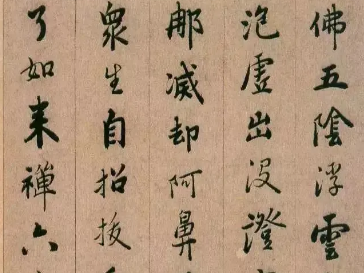 佛五陰浮雲
泡虛出没證
那滅却阿鼻
衆生自招拔
了如来禪六